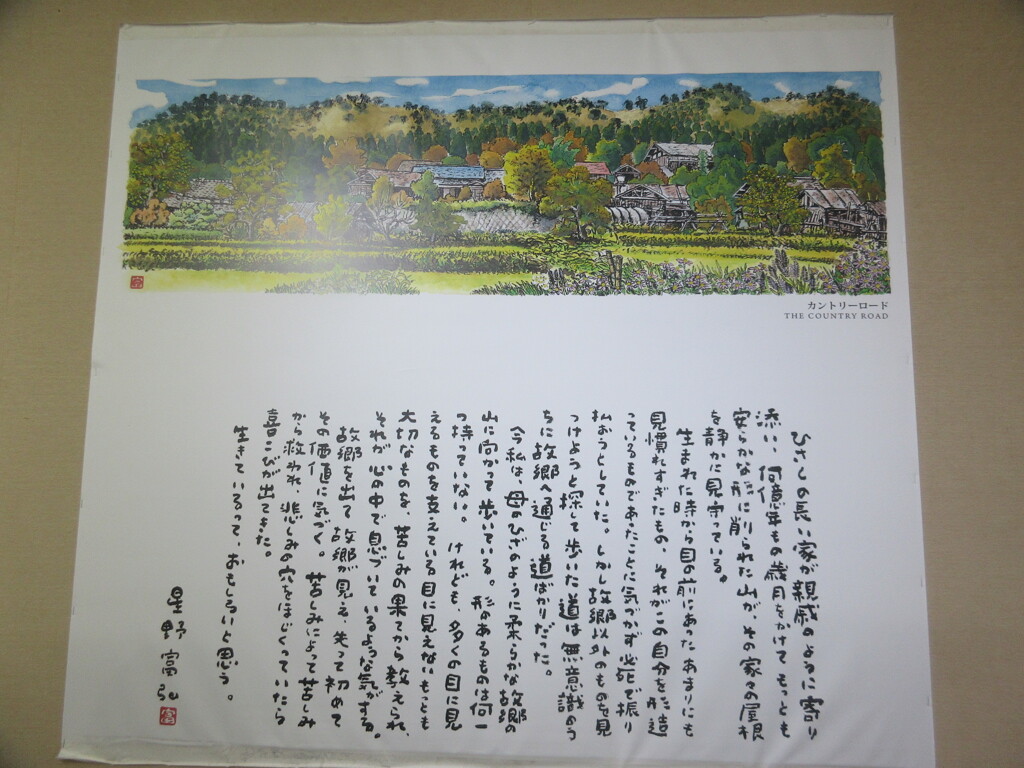 カントリーロード
THE COUNTRY ROAD
ひさしの長い家が親戚のように寄り
添い、何億年もの歳月をかけてもっとも
安らかな形に削られた山が、その家々の屋根
を静かに見守っている。
生まれた時から目の前にあったあまりにも
見慣れすぎたもの、それがこの自分を形造
っているものであったことに気づかず必死で振り
払おうとしていた。しかし故郷以外のものを見
つけようと探して歩いた道は無意識のう
ちに故郷へ通じる道ばかりだった。
今私は、母のひざのように柔らかな故郷の
山に向かって歩いている。形があるものは何一
つ持っていない。けれども、多くの目に見
えるものを支えている目に見えないもっとも
大切なものを、苦しみの果てから教えられ、
それが心の中で息づいているような気がする。
故郷を出て故郷が見え、失って初めて
その価値に気づく。苦しみによって苦しみ
から救われ、悲しみの穴をほじくっていたら
喜こびが出てきた。
生きているって、おもしろいと思う。
星野富弘